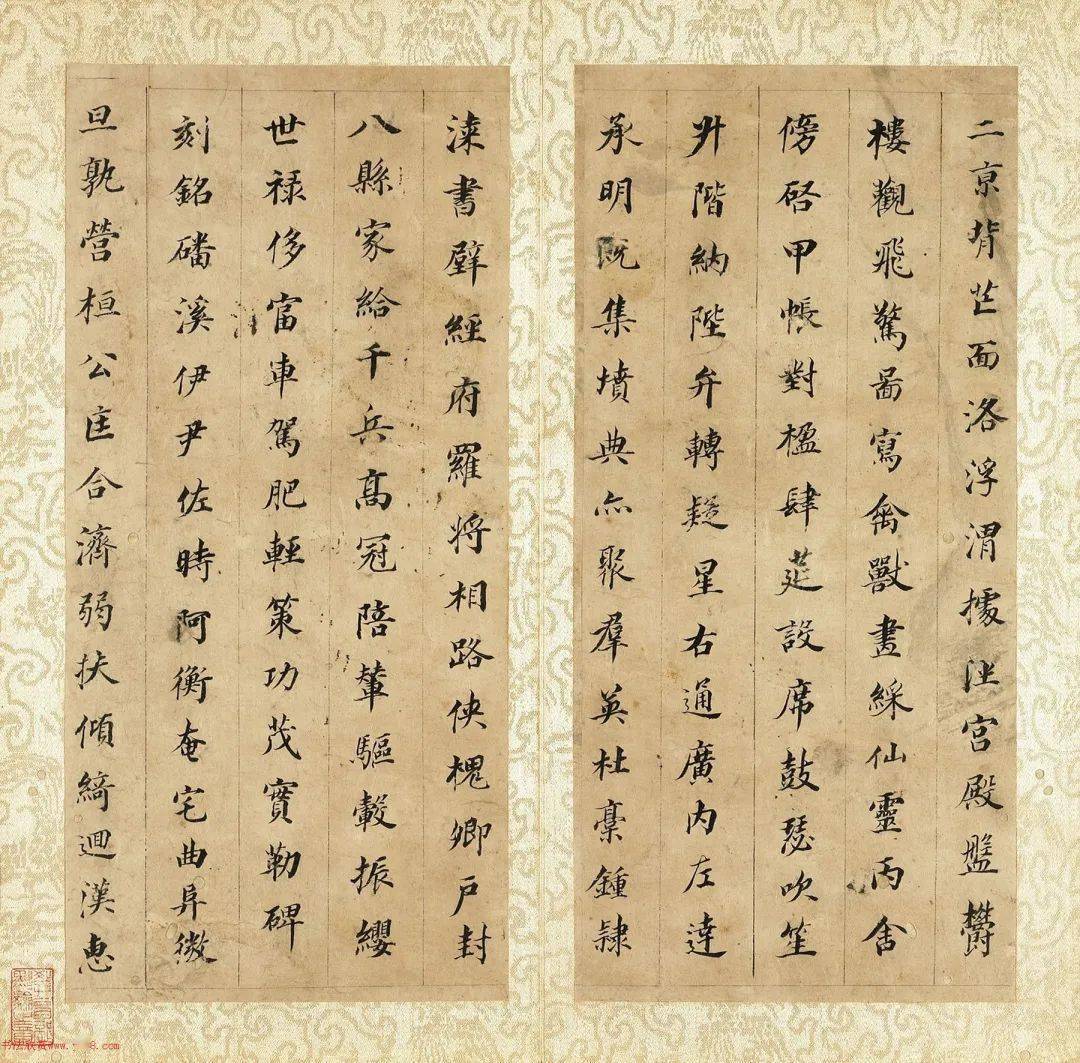 二亰背芒面洛浮渭據涇宮殿盤欝
樓觀飛驚啚寫禽獸畫綵仙靈丙舍
傍啓甲帳對楹肆莚設席鼓瑟吹笙
升階納陛弁轉疑星右通廣內左達
承明既集墳典亦聚羣英杜稾鍾隸
漆書壁經府羅將相路俠槐卿戶封
八縣家給千兵高冠陪輦驅轂振纓
世祿侈富車駕肥輕策功茂實勒碑
刻銘磻溪伊尹佐時阿衡奄宅曲阜微
旦孰營桓公匡合濟弱扶傾綺迴漢惠
书法欣赏